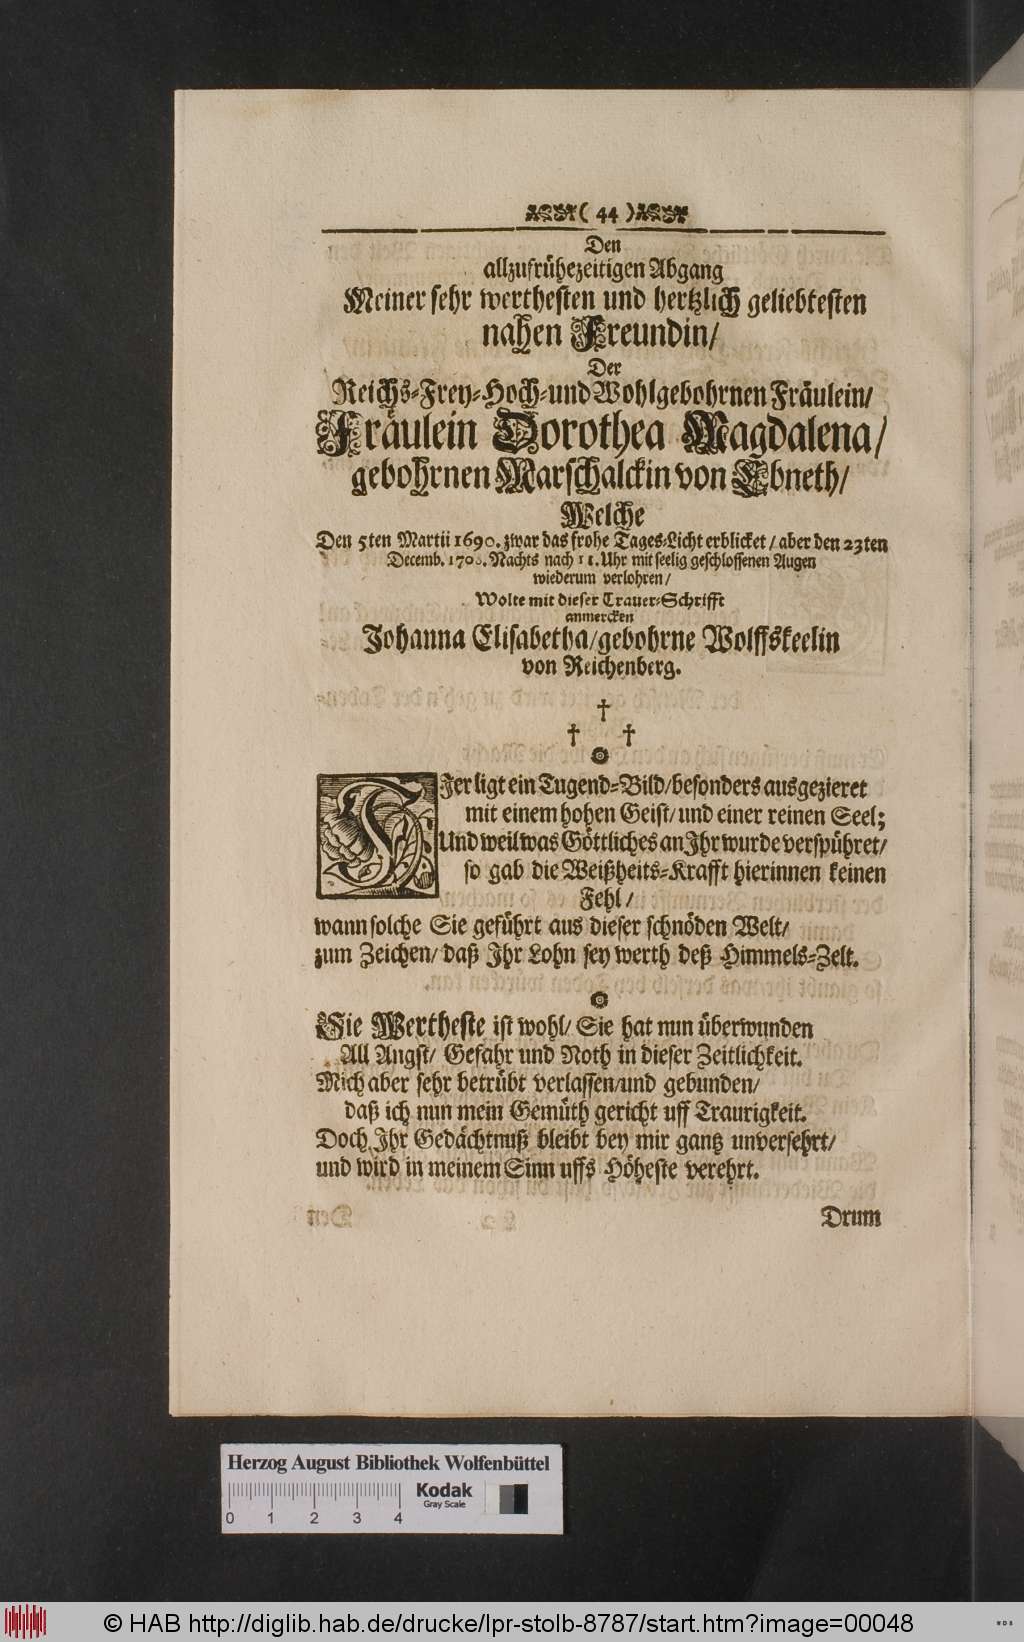 ( 44 )
Den
allzufrühezeitigen Abgang
Meiner sehr werthesten und hertzlich geliebtesten
nahen Freundin/
Der
Reichs-Frey-Hoch-und Wohlgebohrnen Fräulein/
Fräulein Dorothea Magdalena/
gebohrnen Marschalckin von Ebneth/
Welche
Den 5ten Martii 1690. zwar das frohe Tages-Licht erblicket / aber den 23ten
Decemb. Nachts nach 11. Uhr mit seelig geschlossenen Augen
wiederum verlohren /
Wolte mit dieser Trauer-Schrifft
anmercken
Johanna Elisabetha/gebohrne Wolffskeelin
von Reichenberg.
† 
† †
HIer ligt ein Tugend-Bild/besonders ausgezieret
mit einem hohen Geist/und einer reinen Seel;
Und weil was Göttliches an Ihr wurde verspühret/
so gab die Weißheits-Krafft hierinnen keinen
Fehl /
wann solche Sie geführt aus dieser schnöden Welt/
zum Zeichen/ daß Ihr Lohn sey werth deß Himmels-Zelt.
Sie Wertheste ist wohl/ Sie hat nun überwunden
All Angst/ Gefahr und Noth in dieser Zeitlichkeit.
Mich aber sehr betrübt verlassen/und gebunden/
daß ich nun mein Gemüth gericht uff Traurigkeit.
Doch Ihr Gedächtnuß bleibt bey mir gantz unversehrt/
und wird in meinem Sinn uffs Höheste verehrt.
Drum
Herzog August Bibliothek Wolfenbüttel
Kodak
Gray Scale
0 1 2 3 4
© HAB http://diglib.hab.de/drucke/lpr-stolb-8787/start.htm?image=00048